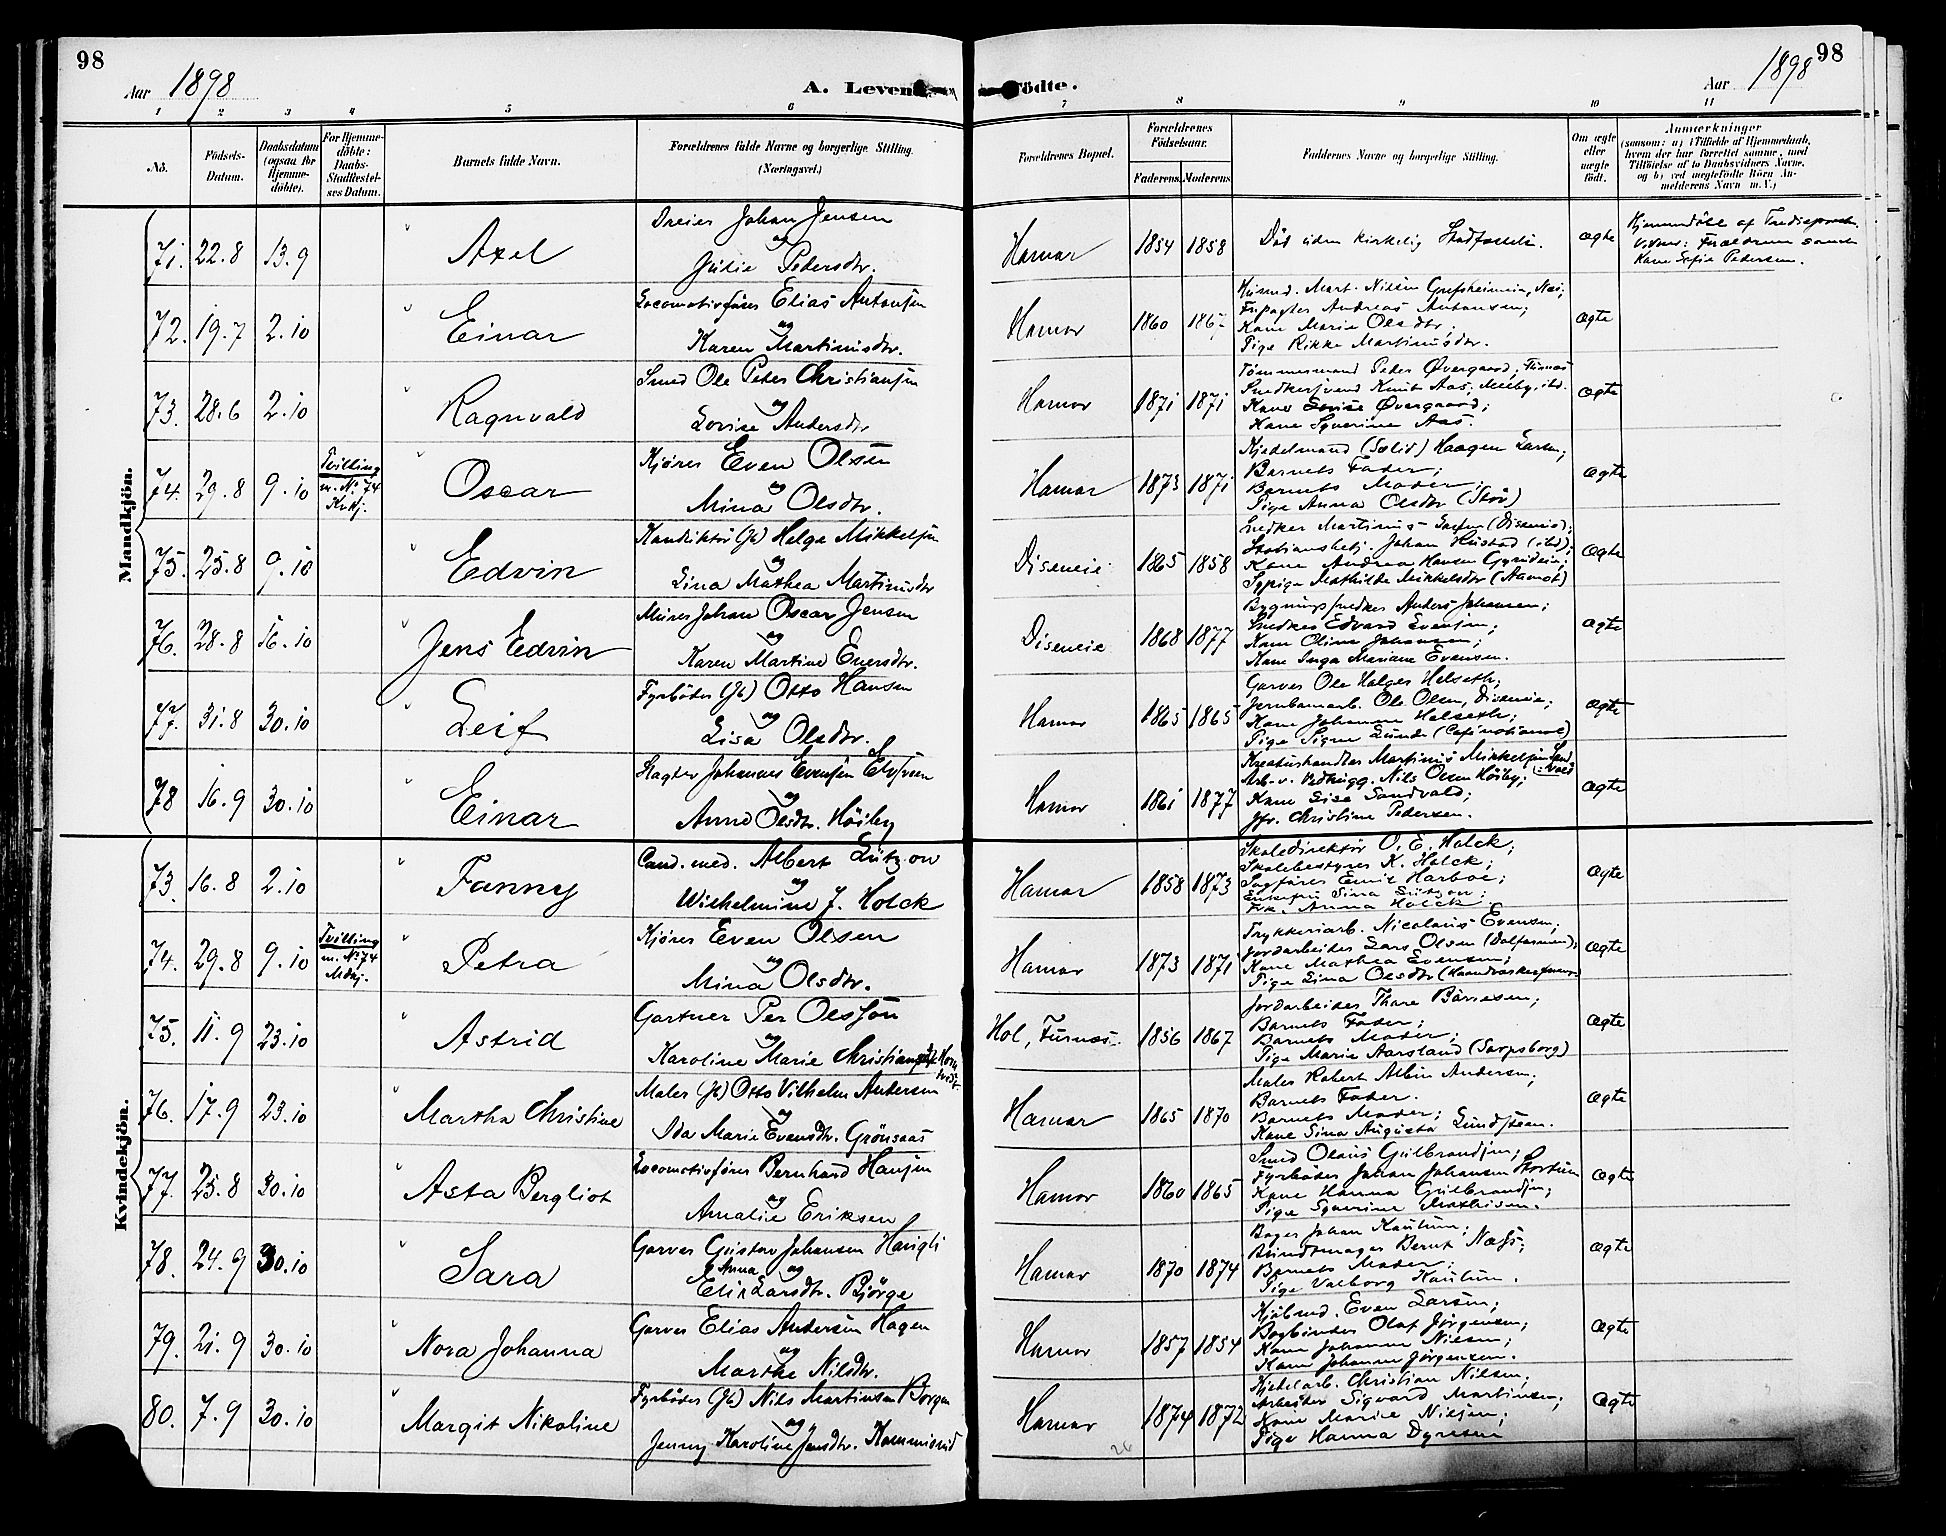 98
98
Aar 1898
A. Levende
Födte.
Aar 1898
1 2 3 4 5 6 7 8 9 10 11
No.
Födsels-Datum.
Daabsdatum (ogsaa for Hjemmedöbte).
For Hjemmedöbte: Daabs-Stadfæstelses Datum.
Barnets fulde Navn.
Forældrenes fulde Navne og borgerlige Stilling. (Næringsvei.)
Forældrenes Bopæl.
Forældrenes Födselsaar.
Faderens.
Moderens.
Faddernes Navne og borgerlige Stilling.
Om ægte eller uægte födt.
Anmærkninger
(saasom: a) i Tilfælde af Hjemmedaab, hvem der har forrettet samme, med Tilföielse af to Daabsvidners Navne, og b) ved uægtefödte Börn Anmelderens Navn m. V.)
Mandkjön.
71. 22.8 13.9 Axel
Dreier Johan Jensen
og
Julie Pedersdtr.
Hamar 1854 1858
Död uden kirkelig Stadfæstelse.
Ægte
Kane Sofie Pedersen.
72. 19.7 2.10 Einar
Locomotivfører Elias Antonsen
og
Karen Martinusdtr.
Hamar 1860
Andreas Antonsen;
Kone Marie Olsdtr;
Pige Rikke Martinusdtr.
Ægte
73. 28.6 2.10 Ragnvald
Smed Ole Peter Christiansen
og
Lovise Andersdtr
Hamar 1871 1871
Tømmermand Peder Øvergaard, Furnæs
Snedkersvend Knut Aas, Melby, ibd.
Kone Lovise Øvergaard;
Kone Syverine Aas.
Ægte
74. 29.8 9.10
Tvilling
m. No 74
Kvkj.
Oscar
Kjører Even Olsen
og
Mina Olsdtr.
Hamar 1873 1871
Haagen Larsen;
Barnets Fader;
Barnets Moder;
Pige Anna Olsdtr (Stör)
Ægte
75. 25.8 9.10 Edvin
Konduktør (Jb) Helge Mikkelsen
og
Lina Mathea Martinusdtr
Diseneie 1865 1858
Snedker Martinus Larsen (Diseneie);
Johan Hustad (ibd);
Kone Andrea Hansen
Sypige Mathilde Mikkelsdtr (Aamot)
Ægte
76. 28.8 16.10 Jens Edvin
Murer Johan Oscar Jensen
og
Karen Martine Enersdtr.
Diseneie 1868 1877
Bygningssnedker Anders Johansen;
Snedker Edvard Evensen;
Kone Oline Johansen;
Kone Inga Mariane Evensen.
Ægte
77. 31.8 30.10 Leif
Fyrbøder (Jb) Otto Hansen
og
Lisa Olsdtr.
Hamar 1865 1865
Garver Ole Holger Helseth;
Jernbanearb. Ole Olsen, Diseneie;
Kone Johanne Helseth;
Pige Signe Lunde (Café national)
Ægte
78 16.9 30.10 Einar
Slagter Johannes Evensen
og
Anne Olsdtr. Høiby
Hamar 1861 1877
Kreaturhandler Martinus Mikkelsen Sandvold
Arb. v. Vedhugg. Nils Olsen Høiby;
Kone Lise Sandvold;
Jfr. Christine Pedersen.
Ægte
Kvindekjön.
73. 16.8 2.10 Fanny
Cand. med. Albert Lützon
og
Wilhelmine J. Holck
Hamar 1858 1873
Skoledirektør O. E. Holck;
Skolebestyrer K. Holck;
Sagfører Emil Harboe;
Enkefru Sina Lützon;
Frk. Anna Holck.
Ægte
74. 29.8 9.10
Tvilling
m. No 74
Mdkj.
Petra
Kjører Even Olsen
og
Mina Olsdtr.
Hamar 1873 1871
Trykkeriarb. Nicolaus Evensen;
Jordarbeider Lars Olsen (Dalfarmen);
Kone Mathea Evensen;
Pige Lina Olsdtr
Ægte
75. 11.9 23.10 Astrid
Gartner Per Olsson
og
Karoline Marie
Hol, Furnæs. 1856 1867
Jordarbeider Thore Börresen;
Barnets Fader;
Barnets Moder;
Pige Marie Aarsland (Sarpsborg)
Ægte
76. 17.9 23.10 Martha Christine
Maler (Jb) Otto Vilhelm Andersen
og
Ida Marie Evensdtr. Grönsaas
Hamar 1865 1870
Maler Robert Albin Andersen;
Barnets Fader.
Barnets Moder;
Kone Sina Augusta Lundsteen.
Ægte
77. 25.8 30.10 Asta Bergliot
Locomotivfører Bernhard Hansen
og
Amalie Eriksen
Hamar 1860 1865
Smed Olaus Gulbrandsen;
Fyrbøder Johan Johansen
Kone Hanna Gulbrandsen;
Pige Syverine Mathisen.
Ægte
78. 24.9 30.10 Sara
Garver Gustav Johansen Haugli
og
Anna Elise Larsdtr. Bjørge
Hamar 1870 1874
Bager Johan Haulum;
Bundtmager Bernt Næss;
Barnets Moder;
Pige Valborg Haulum.
Ægte
79. 21.9 30.10 Nora Johanna
Garver Elias Andersen Hagen
og
Marthe Nilsdtr.
Hamar 1857 1854
Kjöbmd. Even Larsen;
Bogbinder Olaf Jørgensen;
Kone Johanne Nilsen;
Kone Johanne Jörgensen.
Ægte
80. 7.9 30.10 Margit Nikoline
Fyrbøder (Jb) Nils Martinsen Borgen
og
Jenny Karoline Jensdtr.
Hamar 1874 1872
Kjedelarb. Christian Nilsen;
Arbeider Sigvard Martinsen;
Kone Marie Nilsen;
Pige Hanna Dyresen
Ægte